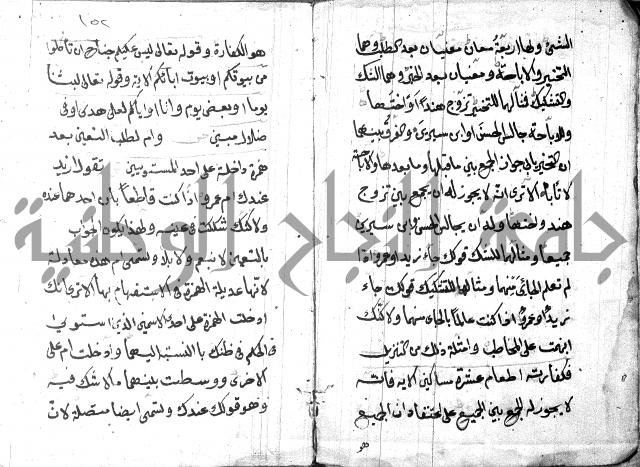 الشيئين ولها اربعة معان معنيان بعد الطلب وهما
التخيير والاباحة ومعنيان بعد الخبر وهما الشك
والتشكيك فمثالها للتخيير تزوج هندا او اختها
وللاباحة جالس الحسن او ابن سيرين والفرق بينهما
ان التخيير يابى جواز الجمع بين ما قبلها وما بعدها والاباحة
لا تاباه الا ترى انه لا يجوز له ان يجمع بين تزوج
هند واختها وله ان يجالس الحسن وابن سيرين
جميعا ومثالها للشك قولك جاء زيد او عمرو اذا
لم تعلم الجائي منهما ومثالها للتشكيك قولك جاء
زيد او عمرو اذا كنت عالما بالجائي منهما ولكنك
ابهمت على المخاطب وامثلة ذلك من التنزيل
فكفارته اطعام عشرة مساكين الاية فانه
لا يجوز له الجمع بين الجميع على اعتقاد ان الجميع
هو
١٥٢
هو الكفارة وقوله تعالى ليس عليكم جناح ان تاكلوا
من بيوتكم او بيوت ابائكم الاية وقوله تعالى لبثنا
يوما او بعض يوم وانا او اياكم لعلى هدى او في
ضلال مبين وام لطلب التعيين بعد
همزة داخلة على احد المستويين تقول ازيد
عندك ام عمرو اذا كنت قاطعا بان احدهما عنده
ولكنك شككت في عينه ولهذا يكون الجواب
بالتعيين لا بنعم ولا بلا وتسمى ام هذه معادلة
لانها عديلة الهمزة في الاستفهام بها الا ترى انك
ادخلت الهمزة على احد الاسمين الذين استوى
الحكم في ظنك بالنسبة اليهما وادخلت ام على
الاخرى ووسطت بينهما ما لا شك فيه
وهو قولك عندك وتسمى ايضا متصلة لان
جامعة النجاح الوطنية